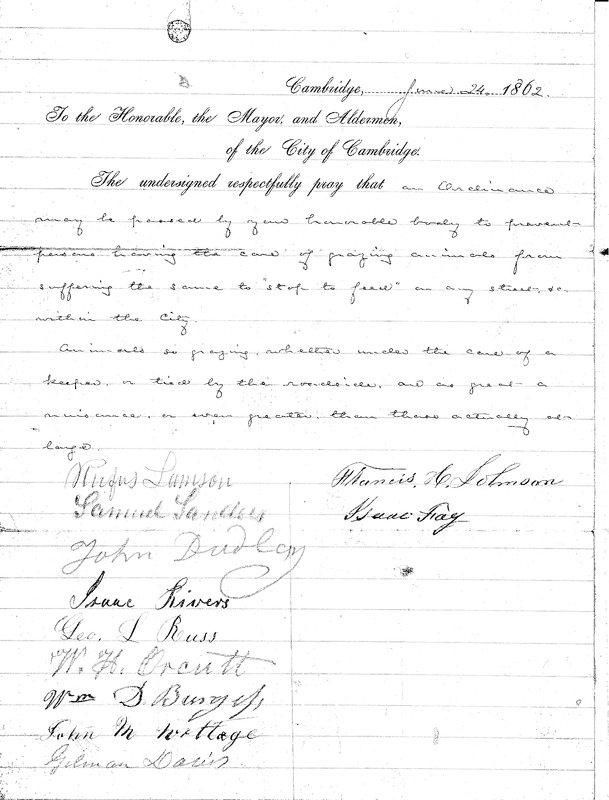 Cambridge, June 24. 1862.
To the Honorable, the Mayor, and Aldermen,
of the City of Cambridge.
The undersigned respectfully pray that an Ordinance
may be passed by your honorable body to prevent
persons having the care of grazing animals from
suffering the same to "stop to feed" on any street, &c.
within the City.
Animals so grazing, whether under the care of a
keeper, or tied by the roadside, are as great a
nuisance, or even greater, than those actually at
large.
Rufus Lamson
Samuel Sanders
John Dudley
Isaac Livers
Geo. L Russ
W. H. Orcutt
Wm D. Burgess
John M Wottage
Gilman Davis
Francis. H. Johnson
Isaac Fay